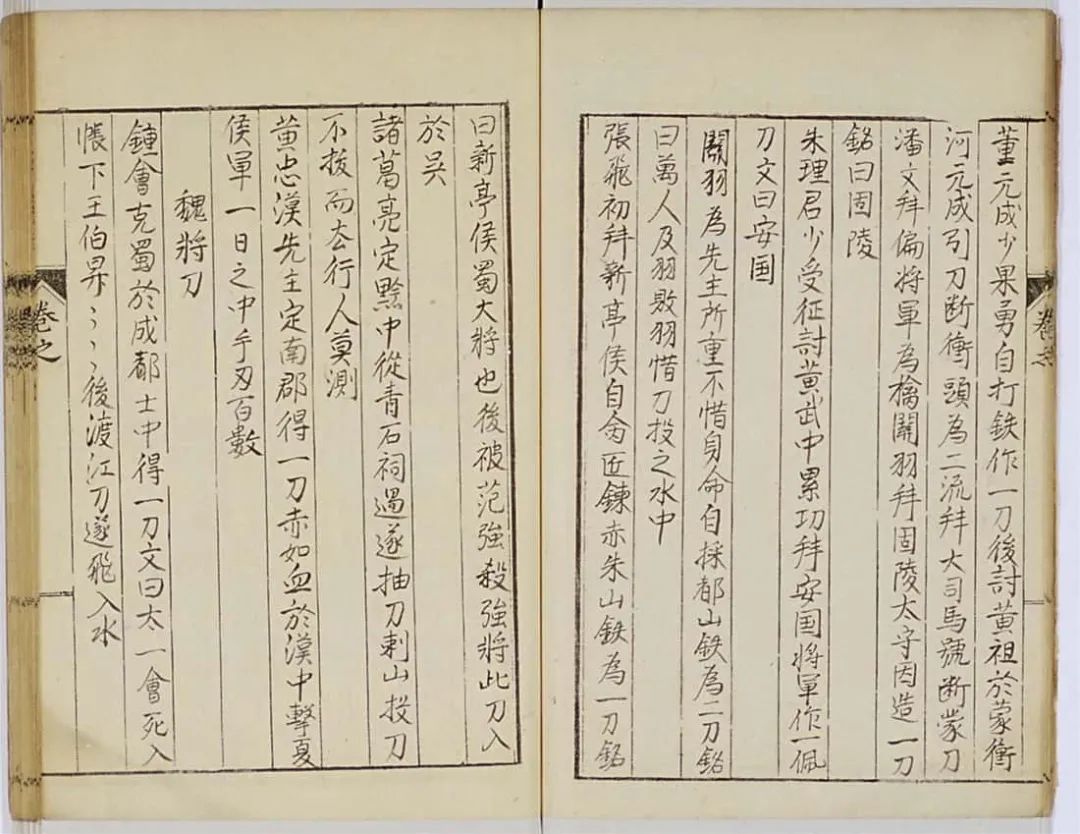 董元成少果勇自打鉄作一刀後討黄祖於蒙衝
河元成引刀断衝頭為二流拜大司馬號断蒙刀
潘文拜偏将軍為擒關羽拜固陵太守因造一刀
銘曰固陵
朱理君少受征討黄武中累功拜安国将軍作一佩
刀文曰安国
關羽為先主所重不惜身命自採都山鉄為二刀銘
曰萬人及羽敗羽惜刀投之水中
張飛初拜新亭侯自命匠鍊赤朱山鉄為一刀銘
曰新亭侯蜀大将也後被范強殺強将此刀入
於吴
諸葛亮定黔中從青石祠過遂抽刀刺山投刀
不拔而去行人莫測
黄忠漢先主定南郡得一刀赤如血於漢中擊夏
侯軍一日之中手刃百數
魏将刀
鍾會克蜀於成都土中得一刀文曰太一會死入
帳下王伯昇〻〻後渡江刀遂飛入水
卷之
卷之